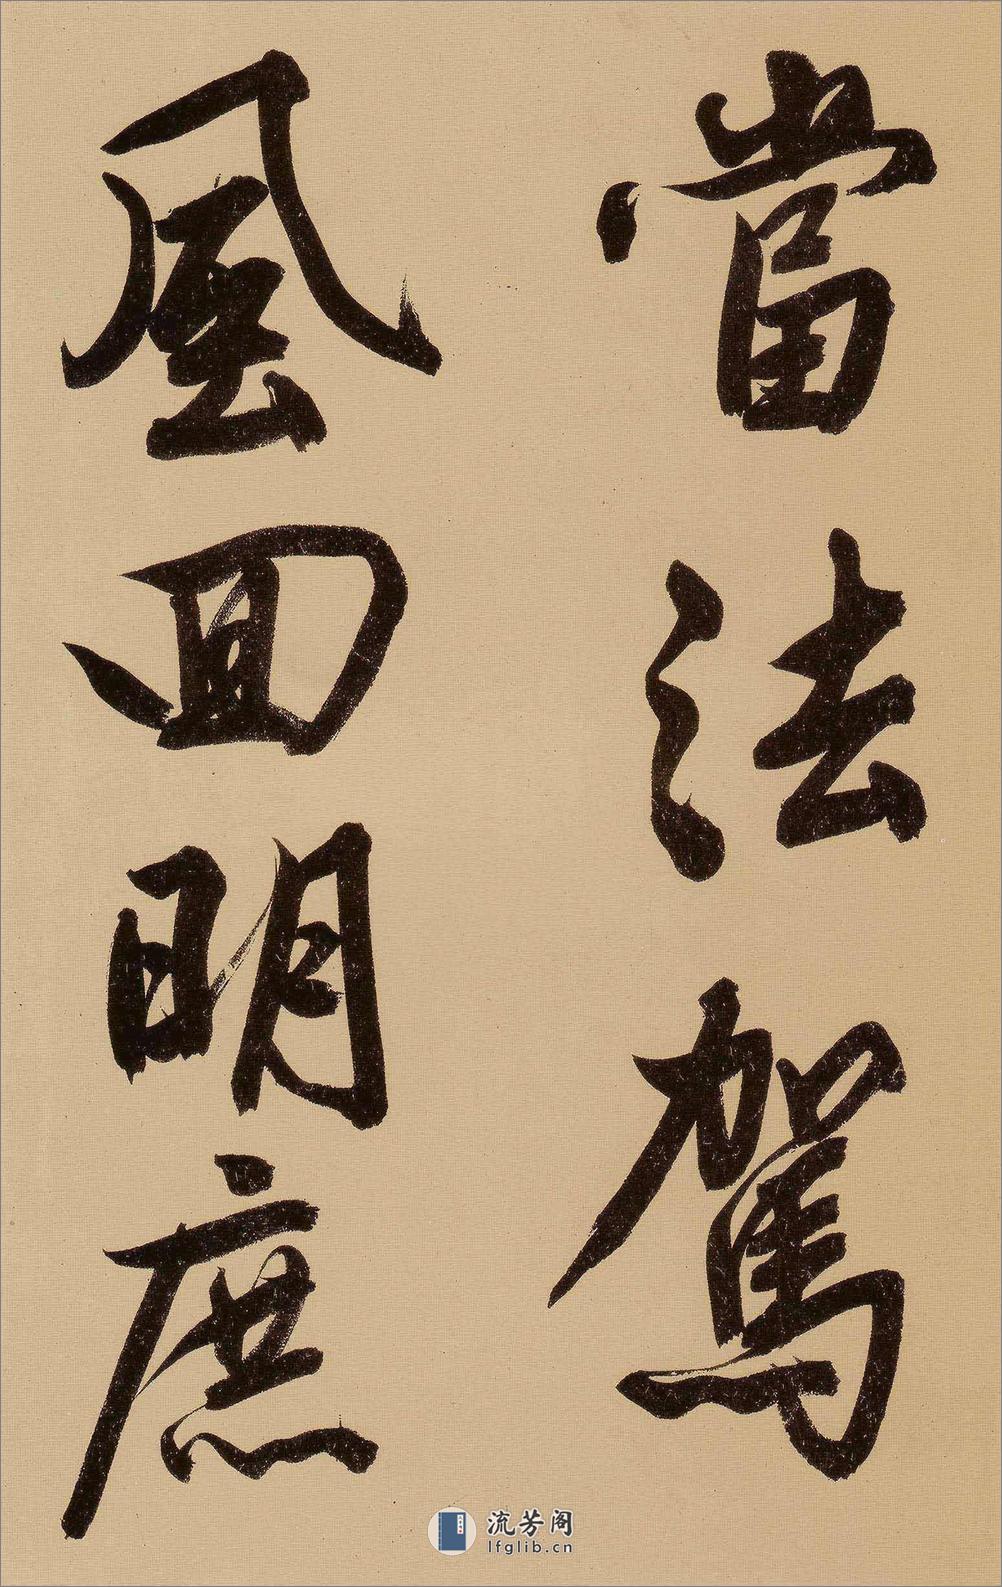 當法駕
風回明庶
流芳阁
lfglib.cn